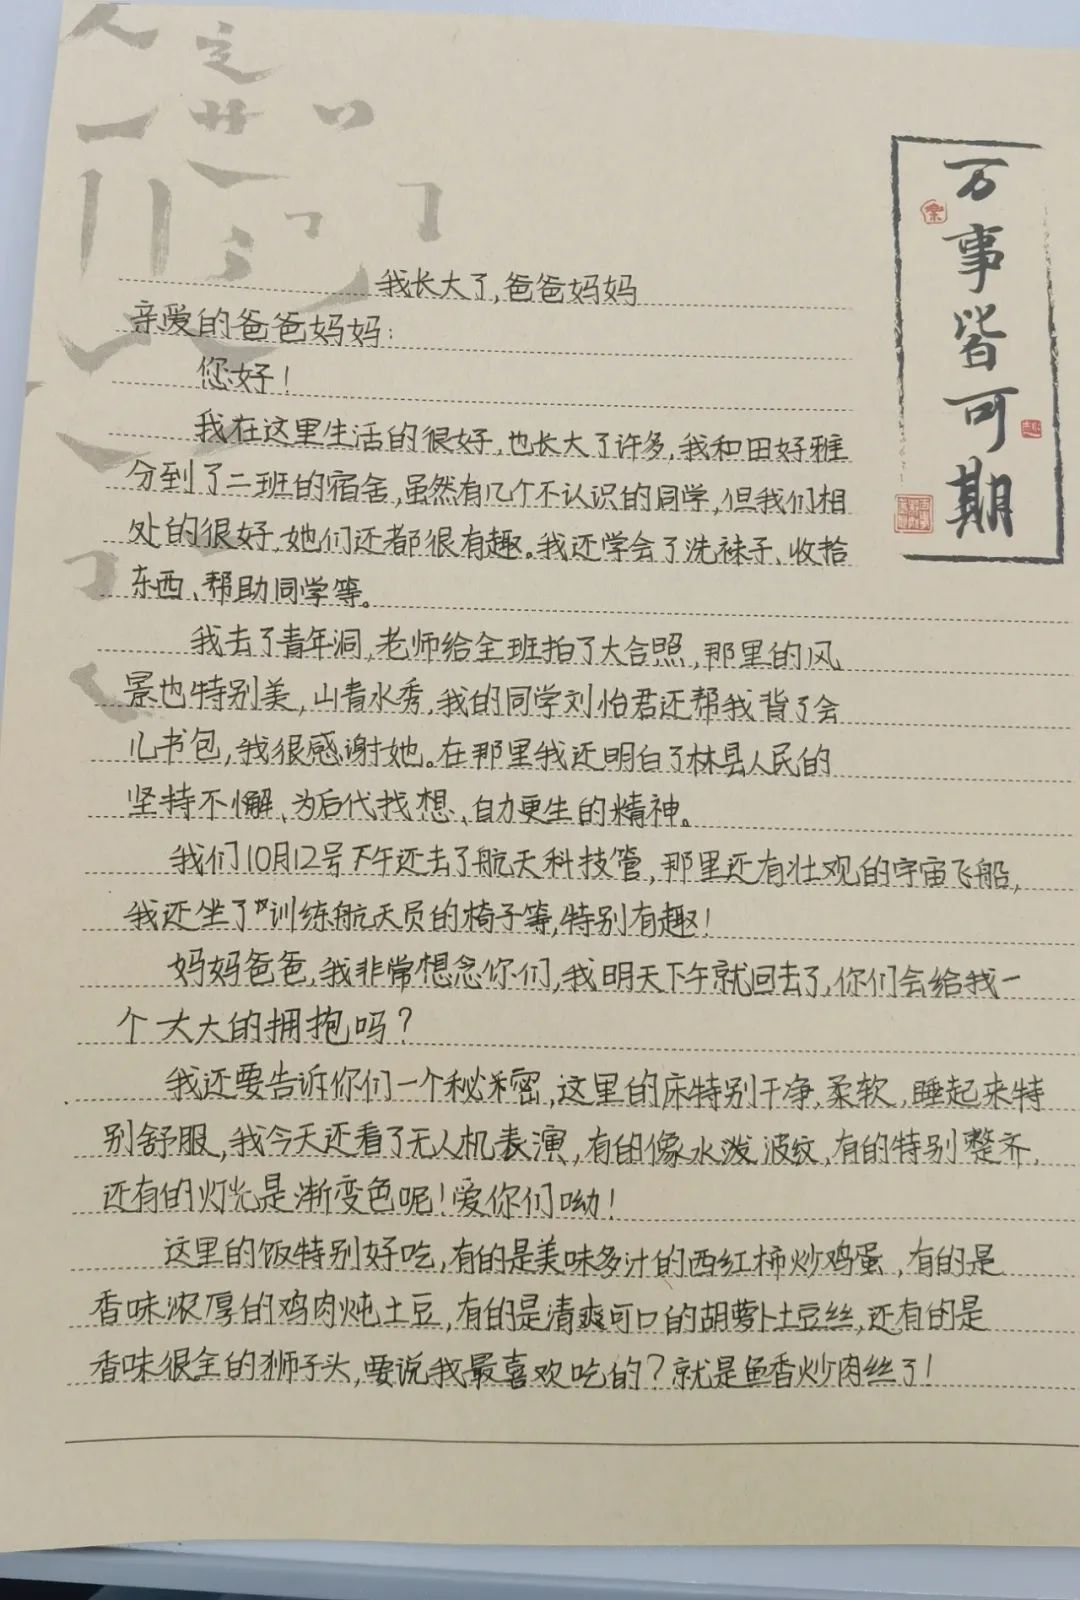 万事皆可期
我长大了,爸爸妈妈
亲爱的爸爸妈妈:
您好!
我在这里生活的很好,也长大了许多,我和田好雅
分到了二班的宿舍,虽然有几个不认识的同学,但我们相
处的很好,她们还都很有趣。我还学会了洗袜子、收拾
东西、帮助同学等。
我去了青年洞,老师给全班拍了大合照,那里的风
景也特别美,山青水秀,我的同学刘怡君还帮我背了会
儿书包,我很感谢她。在那里我还明白了林县人民的
坚持不懈、为后代找想、自力更生的精神。
我们10月12号下午还去了航天科技管,那里还有壮观的宇宙飞船,
我还坐了训练航天员的椅子等,特别有趣!
妈妈爸爸,我非常想念你们,我明天下午就回去了,你们会给我一
个大大的拥抱吗?
我还要告诉你们一个秘密,这里的床特别干净,柔软,睡起来特
别舒服,我今天还看了无人机表演,有的像水泼波纹,有的特别整齐,
还有的灯光是渐变色呢!爱你们呦!
这里的饭特别好吃,有的是美味多汁的西红柿炒鸡蛋,有的是
香味浓厚的鸡肉炖土豆,有的是清爽可口的胡萝卜土豆丝,还有的是
香味很全的狮子头,要说我最喜欢吃的?就是鱼香炒肉丝了!